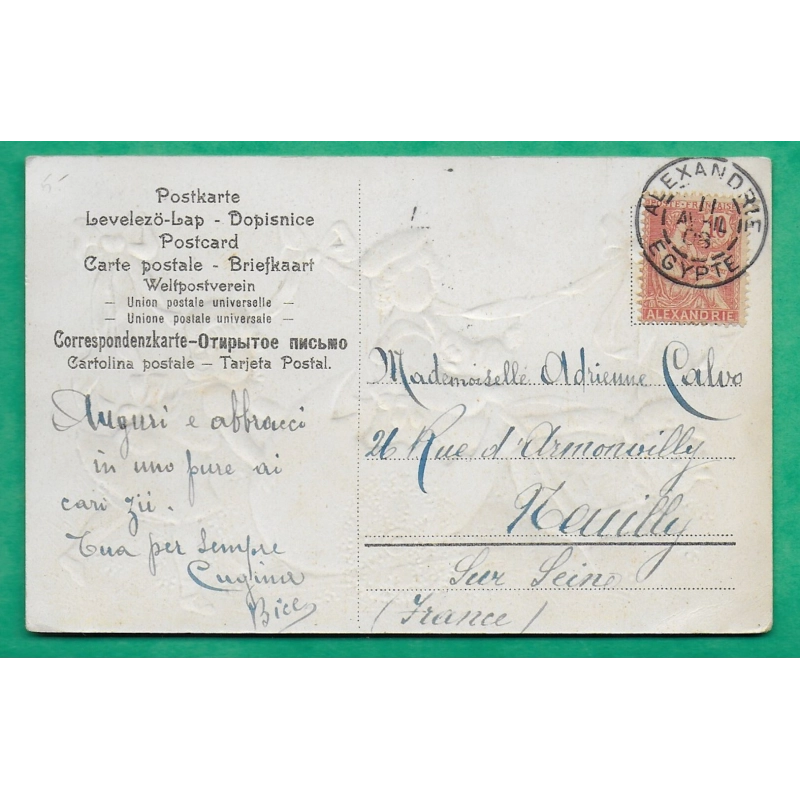 Postkarte
Levelezö-Lap - Dopisnice
Postcard
Carte postale - Briefkaart
Weltpostverein
— Union postale universelle —
— Unione postale universale —
Correspondenzkarte-Открытое письмо
Cartolina postale — Tarjeta Postal.
Auguri e abbracci
in uno pure ai
cari zii.
Tua per sempre
Cugina
Bice
ALEXANDRIE
11
EGYPTE
ALEXANDRIE
Mademoiselle Adrienne Calvo
26 Rue d'Armonvilly
Neuilly
Sur Seine
(France)